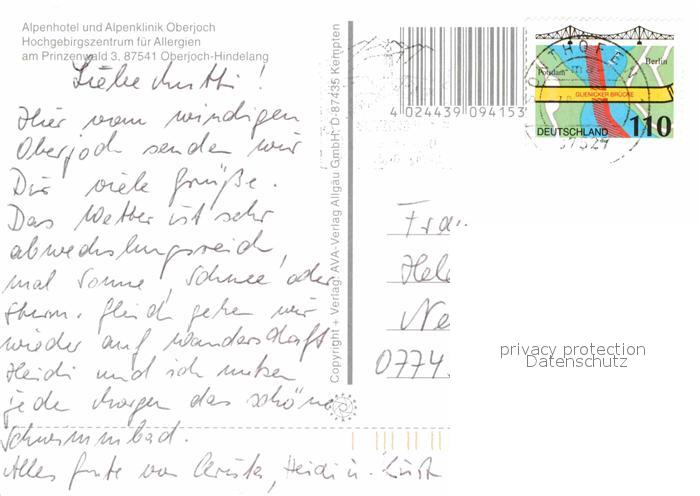 Alpenhotel und Alpenklinik Oberjoch
Hochgebirgszentrum für Allergien
am Prinzenwald 3, 87541 Oberjoch-Hindelang
Liebe Mutti!
Hier vom windigen
Oberjoch senden wir
Dir viele Grüße.
Das Wetter ist sehr
abwechslungsreich,
mal Sonne, Schnee oder
Sturm. Gleich gehen wir
wieder auf Wanderschaft
Heidi und ich nutzen
jede Morgen das schöne
Schwimmbad.
Alles Gute von Christa, Heidi u.
Copyright + Verlag: AVA-Verlag Allgäu GmbH; D-87435 Kempten
4 024439 094153
Potsdam
Berlin
GLIENICKER BRÜCKE
DEUTSCHLAND
110
87527
Frau
Hele
Ne
0774
privacy protection
Datenschutz